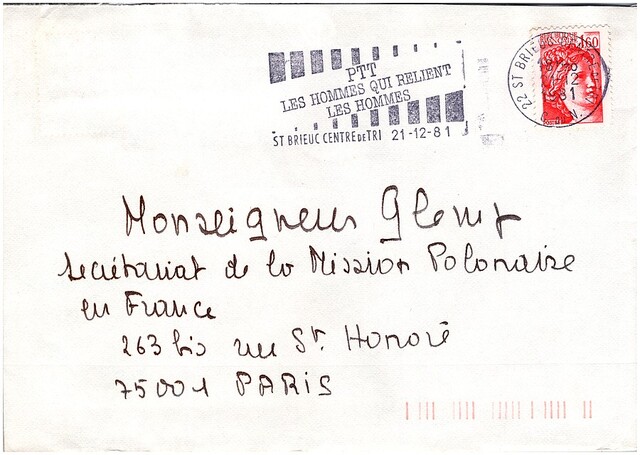 PTT
LES HOMMES QUI RELIENT
LES HOMMES
ST BRIEUC CENTRE DE TRI 21-12-81
22 ST BRIEUC
1,60
Monseigneur Glemp
Secrétariat de la Mission Polonaise
en France
263 bis rue St. Honoré
75001 PARIS